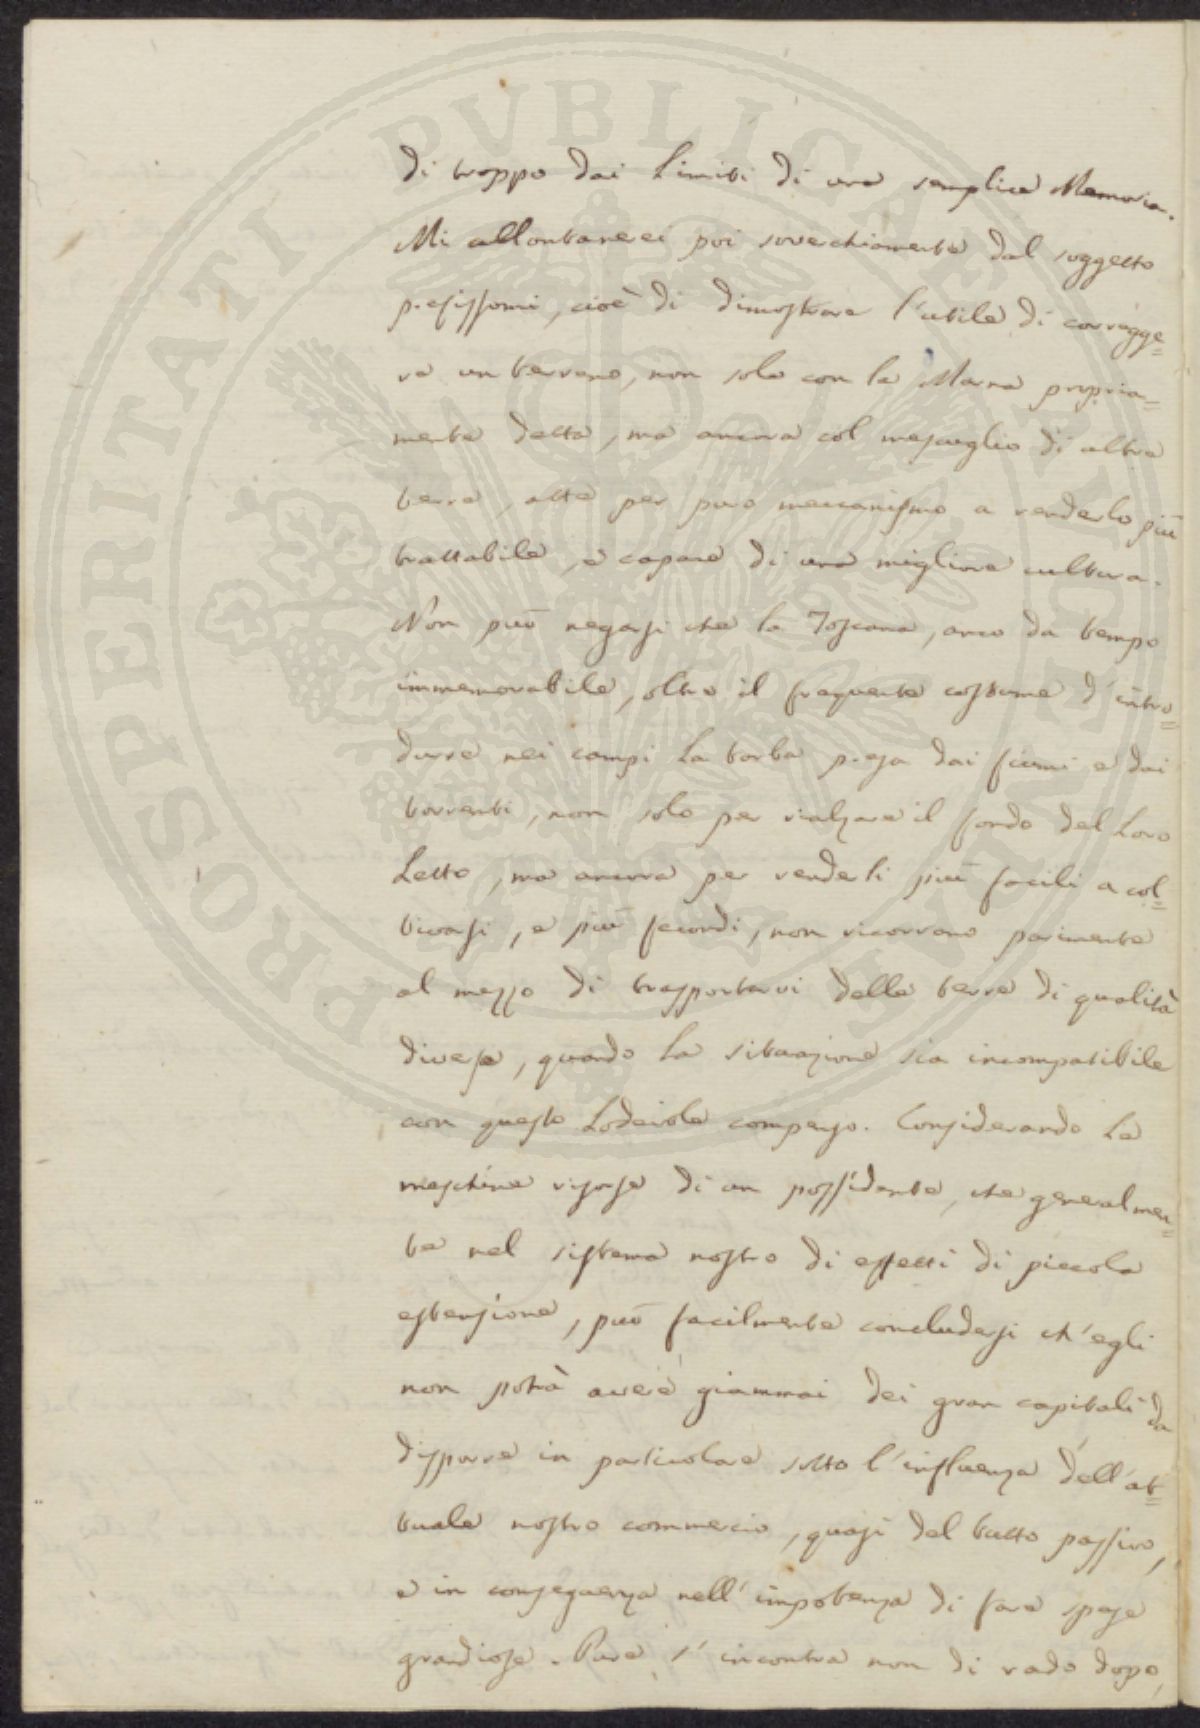 di troppo dai Limiti di una semplice Memoria.
Mi allontanerei poi soverchiamente dal soggetto
prefissomi, cioè di dimostrare l'utile di corregge=
re un terreno, non solo con la Marna propria=
mente detta, ma ancora col mescuglio di altre
terre, atte per puro meccanismo a renderlo più
trattabile, e capace di una migliore cultura.
Non può negarsi che la Toscana, anco da tempo
immemorabile, oltre il frequente costume d'intro=
durre nei campi La torba presa dai fiumi e dai
torrenti, non solo per rialzare il fondo del Loro
Letto, ma ancora per renderli più facili a col=
tivarsi, e più fecondi, non ricorrono parimente
al mezzo di trasportarvi delle terre di qualità
diverse, quando La situazione sia incompatibile
con questo Lodevole compenso. Considerando Le
meschine risorse di un possidente, che generalmen=
te nel sistema nostro di effetti di piccola
estensione, può facilmente concludersi ch'egli
non potrà avere giammai dei gran capitali da
disporre in particolare sotto l'influenza dell'at=
tuale nostro commercio, quasi del tutto passivo,
e in conseguenza nell'impotenza di fare spese
grandiose. Pure s'incontra non di rado dopo,
PROSPERITATI PVBLICAE AVGENDAE